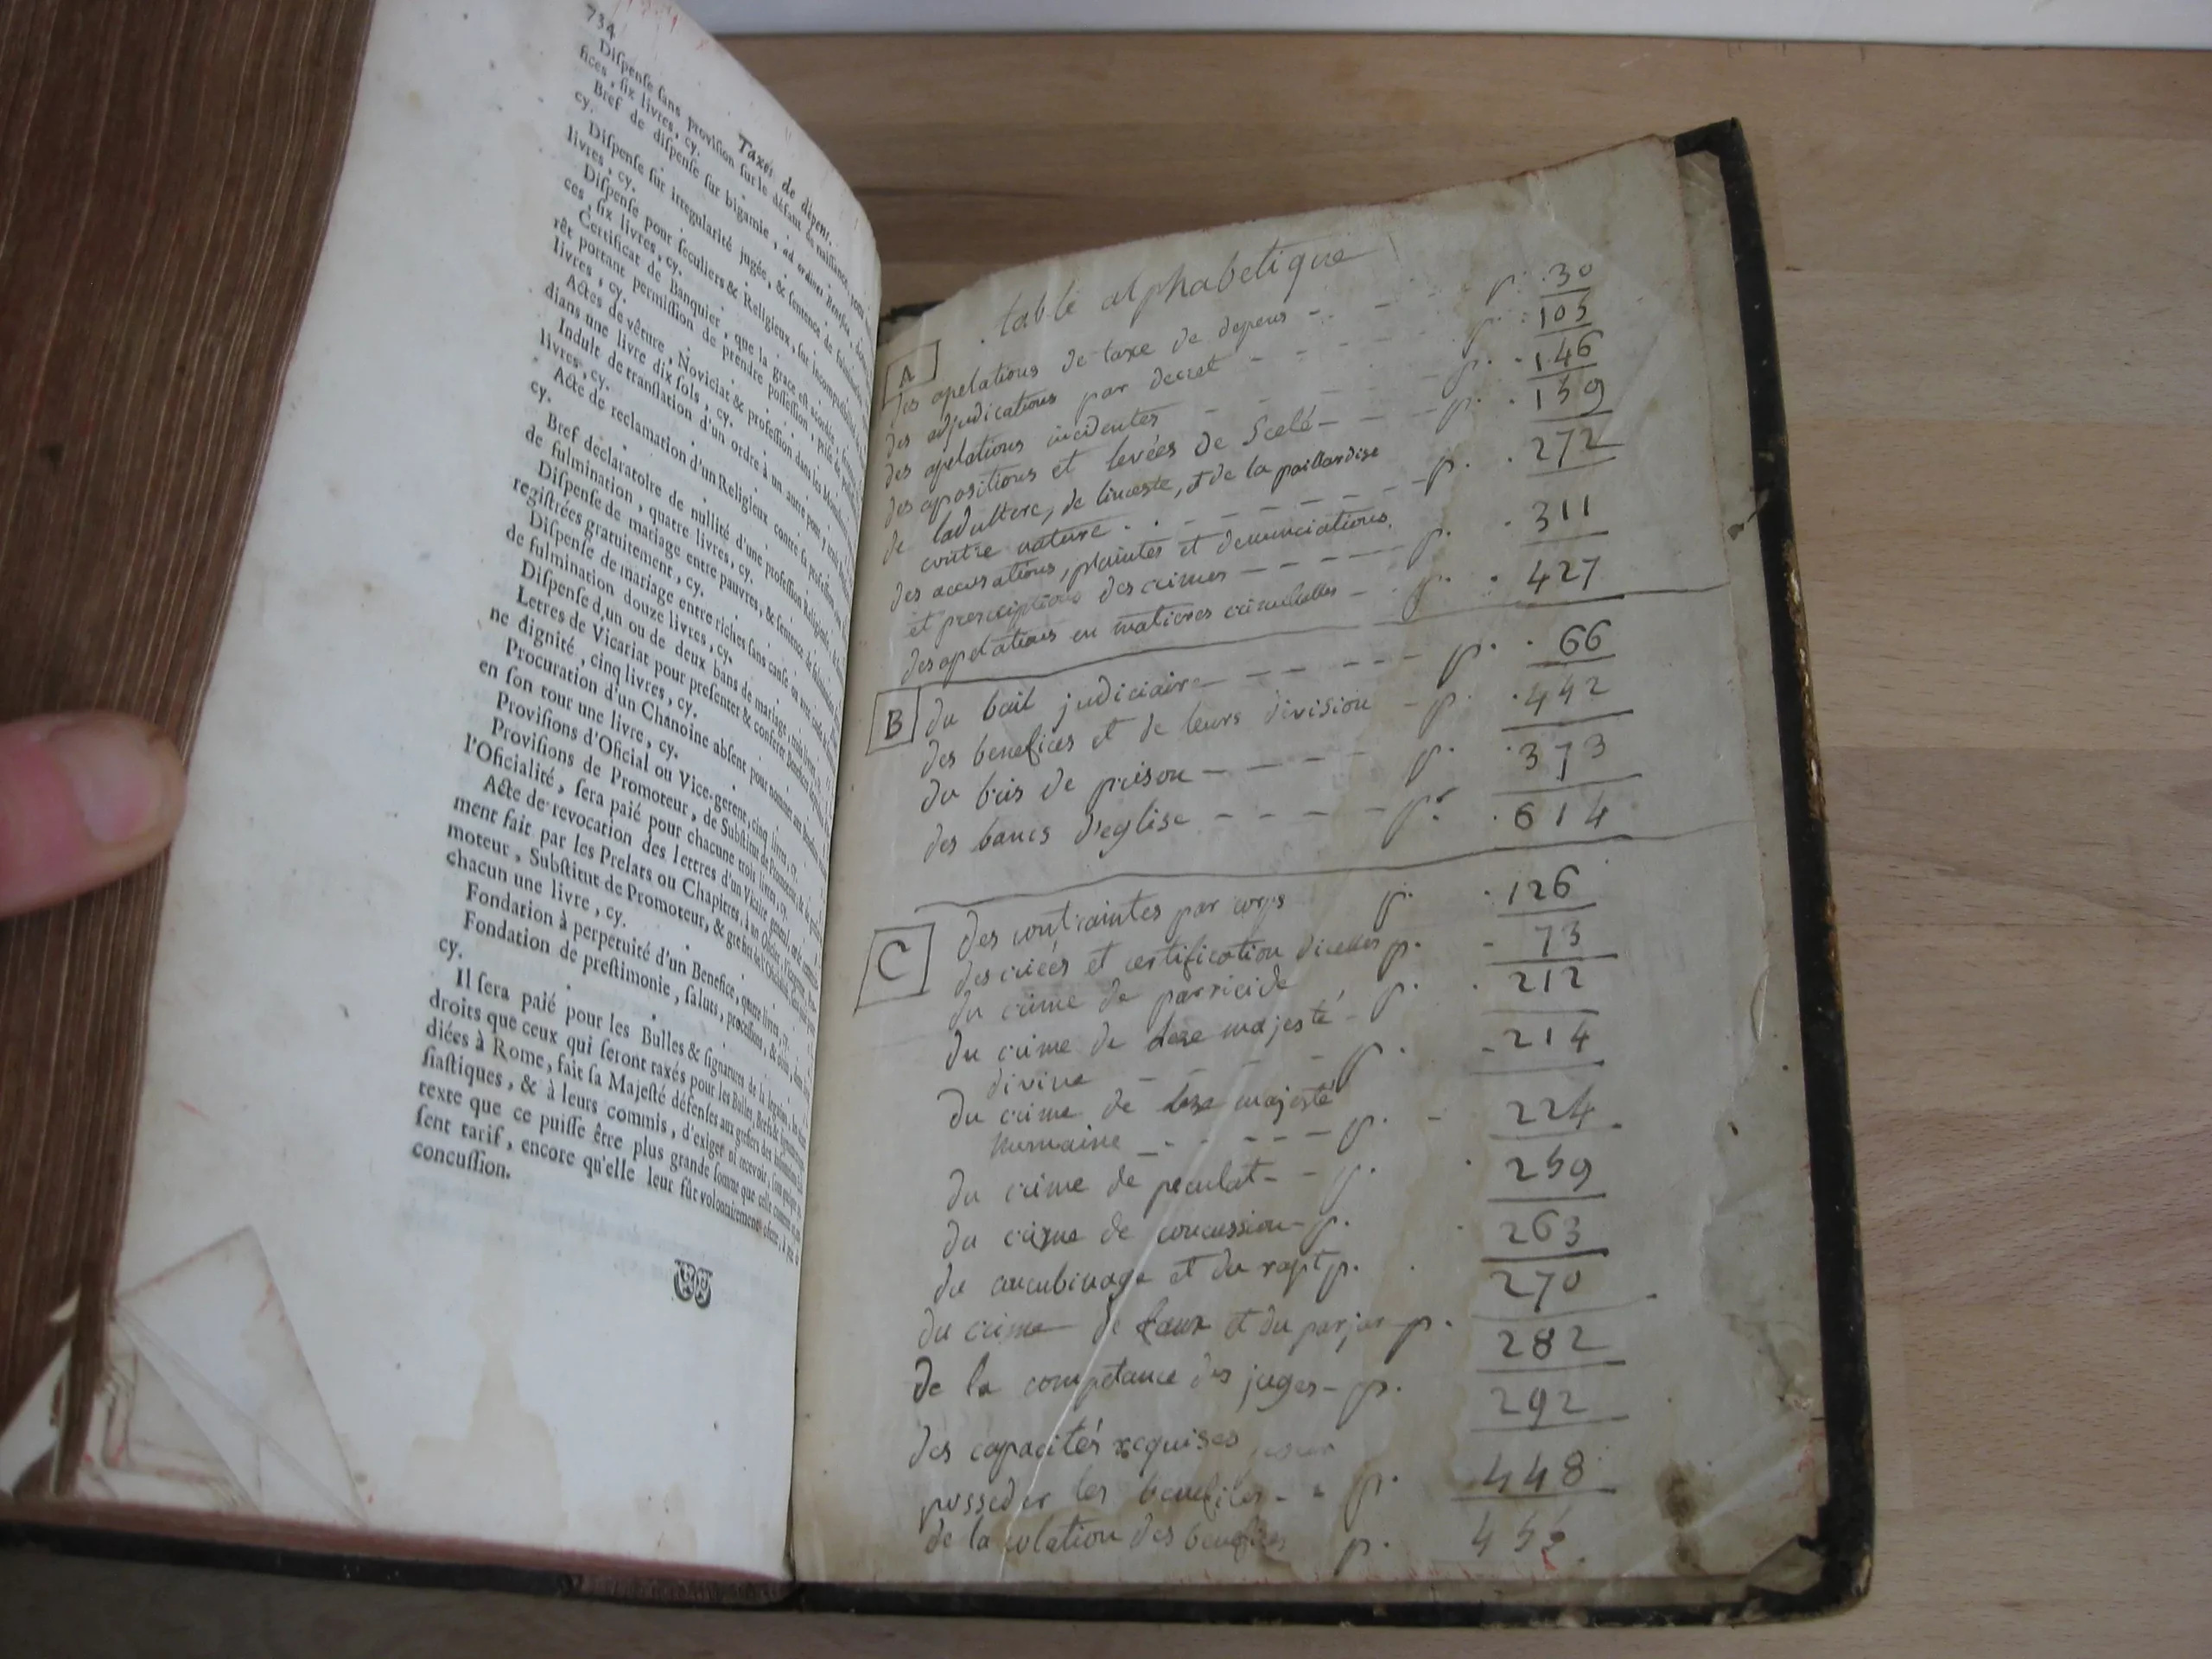 734
Taxes de dépens.
Dispense sans provision sur le défaut de naissance, pour
fices, six livres, cy.
Bref de dispense sur bigamie, ad ordines
cy.
Dispense sur irregularité jugée, & sentence de fulmination
livres, cy.
Dispense pour seculiers & Religieux, sur incompatibilité de
ces, six livres, cy.
Certificat de Banquier, que la grace est accordée,
rêt portant permission de prendre possession, prise de
livres, cy.
Actes de vêture, Noviciat & profession dans les
dians une livre dix sols, cy.
Indult de translation d'un ordre à un autre pour, trois
livres, cy.
Acte de reclamation d'un Religieux contre sa profession
cy.
Bref déclaratoire de nullité d'une profession Religieuse,
de fulmination, quatre livres, cy.
Dispense de mariage entre pauvres, & sentence de fulmination
registrées gratuitement, cy.
Dispense de mariage entre riches sans cause ou avec cause
de fulmination douze livres, cy.
Dispense d'un ou de deux bans de mariage, trois livres, cy.
Letres de Vicariat pour presenter & conferer
ne dignité, cinq livres, cy.
Procuration d'un Chanoine absent pour nommer aux Benefices
en son tour une livre, cy.
Provisions d'Oficial ou Vice-gerent, cinq livres, cy.
Provisions de Promoteur, de Substitut de Promoteur, &
l'Oficialité, sera paié pour chacune trois livres, cy.
Acte de revocation des lettres d'un Vicaire general,
ment fait par les Prelats ou Chapitres, à un Oficial, Vicegerent,
moteur, Substitut de Promoteur, & grefier de l'Oficialité,
chacun une livre, cy.
Fondation à perpetuité d'un Benefice, quatre livres, cy.
Fondation de prestimonie, saluts, processions, &
cy.
Il sera paié pour les Bulles & signatures de la legation, les
droits que ceux qui seront taxés pour les Bulles, Brefs & signatures
diées à Rome, fait sa Majesté défenses aux grefiers des
siastiques, & à leurs commis, d'exiger ni recevoir, sous quelque
texte que ce puisse être plus grande somme que celle contenue au
sent tarif, encore qu'elle leur fût volontairement oferte, à peine de
concussion.
table alphabetique
A
des apelations de taxe de depens p. 30
des adjudications par decret p. 103
des apelations incidentes p. 146
des apositions et levées de Scelé p. 159
de ladultere, de linceste, et de la paillardise
contre nature p. 272
des accusations, plaintes et denunciations
et prescriptions des crimes p. 311
des apelations en matieres criminelles p. 427
B
du bail judiciaire p. 66
des benefices et de leurs division p. 442
du bris de prison p. 373
des bancs d'eglise p. 614
C
des contraintes par corps p. 126
des criées et certification dicelles p. 73
du crime de parricide p. 212
du crime de leze majesté
divine p. 214
du crime de leze majesté
humaine p. 224
du crime de peculat p. 259
du crime de concussion p. 263
du concubinage et du rapt p. 270
du crime de faux et du parjur p. 282
de la competance des juges p. 292
des capacités requises pour
posseder les benefices p. 448
de la colation des benefices p.